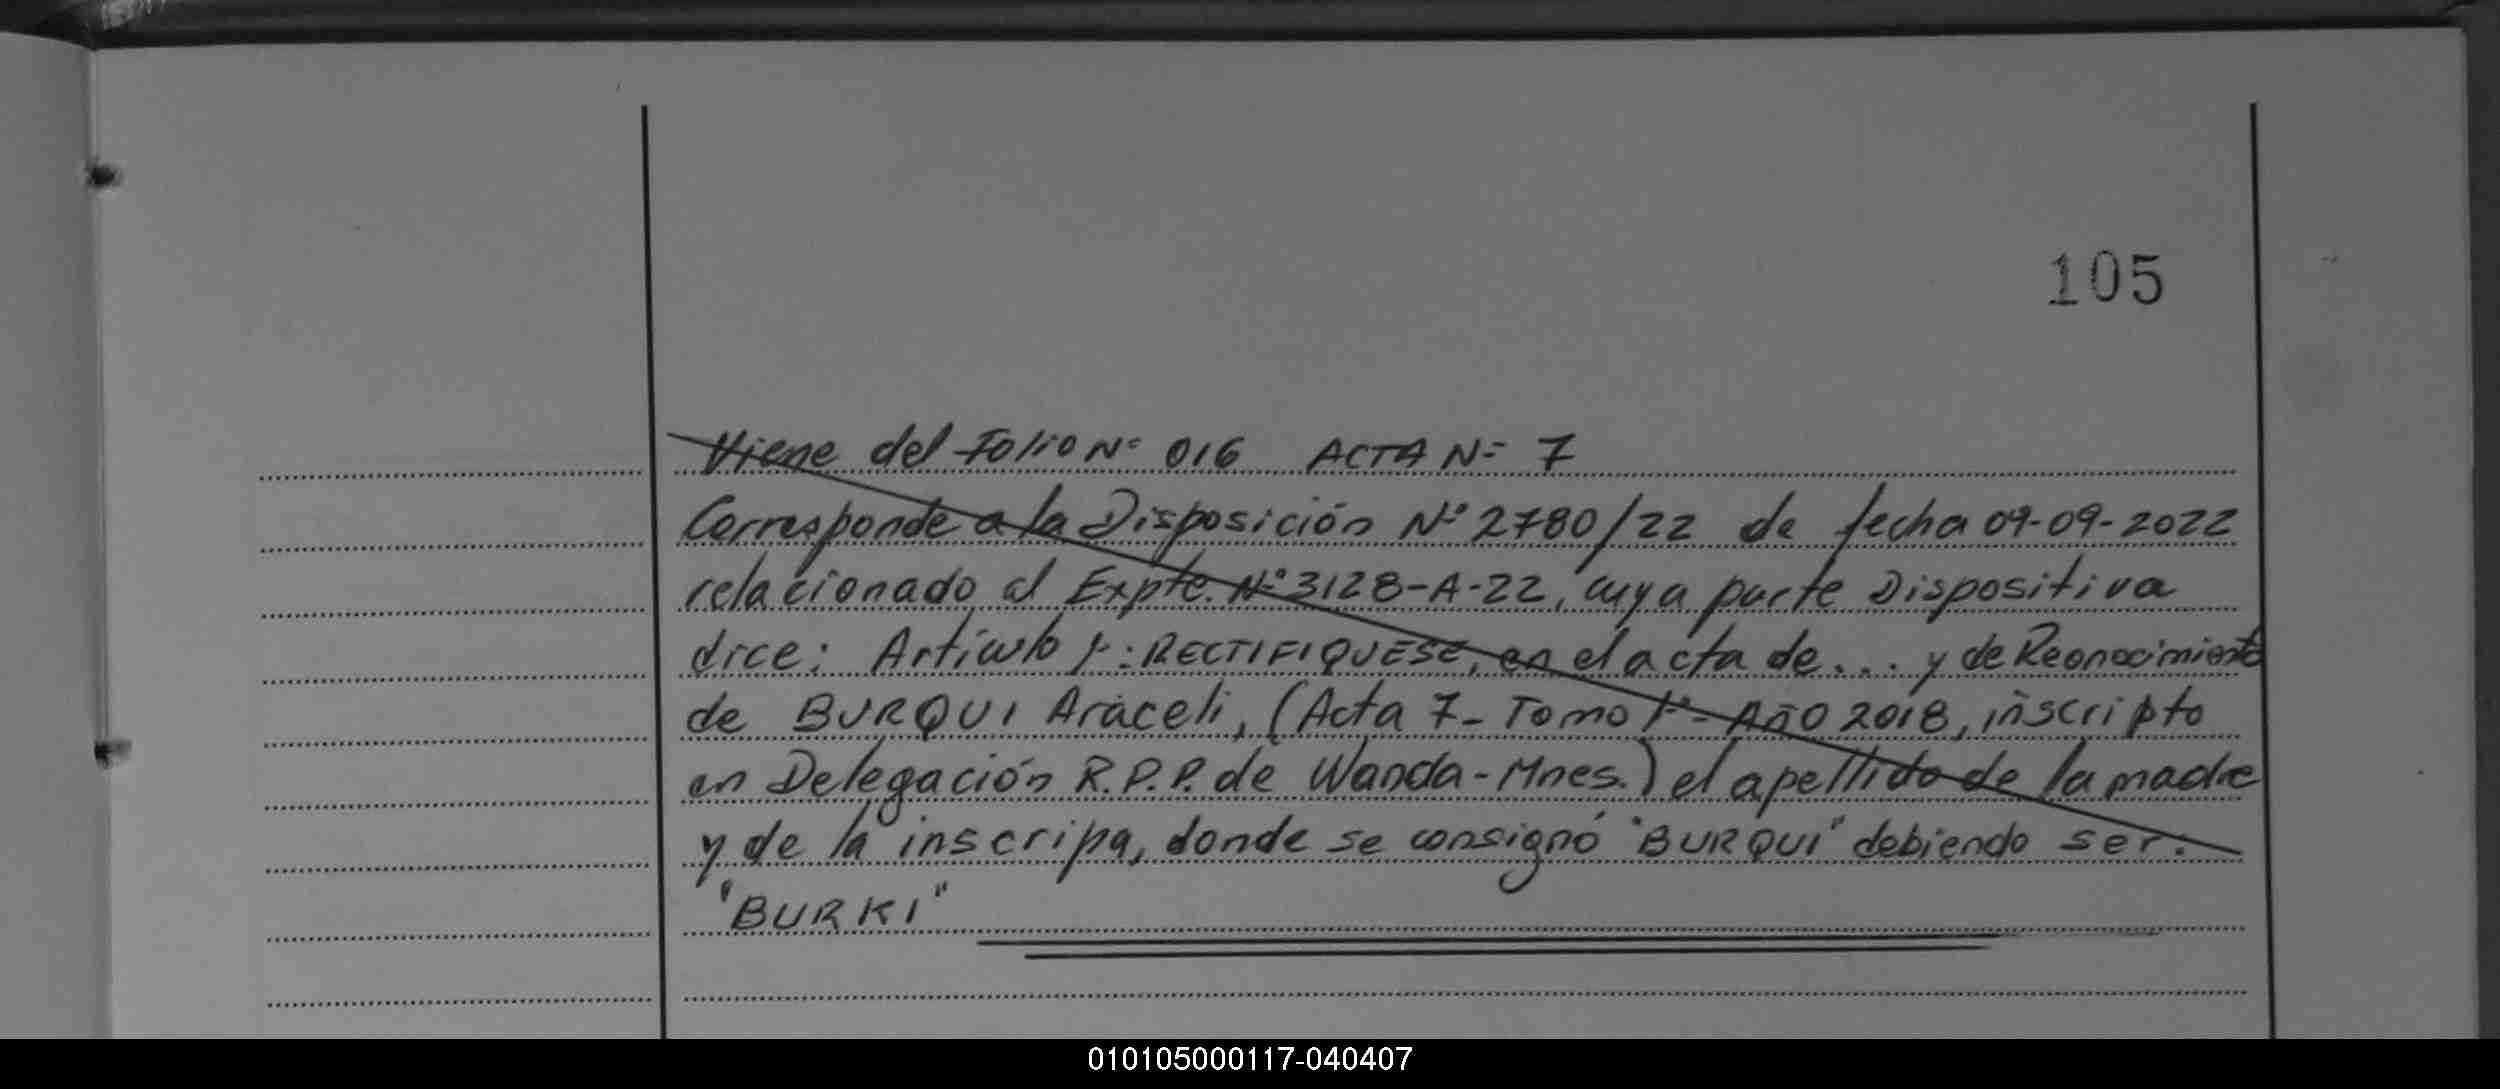 105
Viene del Folio Nº 016 ACTA Nº 7
Corresponde a la Disposición Nº 2780/22 de fecha 09-09-2022
relacionado al Expte. Nº 3128-A-22, cuya parte Dispositiva
dice: Artículo 1º: RECTIFIQUESE, en el acta de... y de Reconocimiento
de BURQUI Araceli, (Acta 7- Tomo 1º- Año 2018, inscripto
en Delegación R.P.P. de Wanda-Mnes.) el apellido de la madre
y de la inscripa, donde se consignó "BURQUI" debiendo ser:
"BURKI"
010105000117-040407